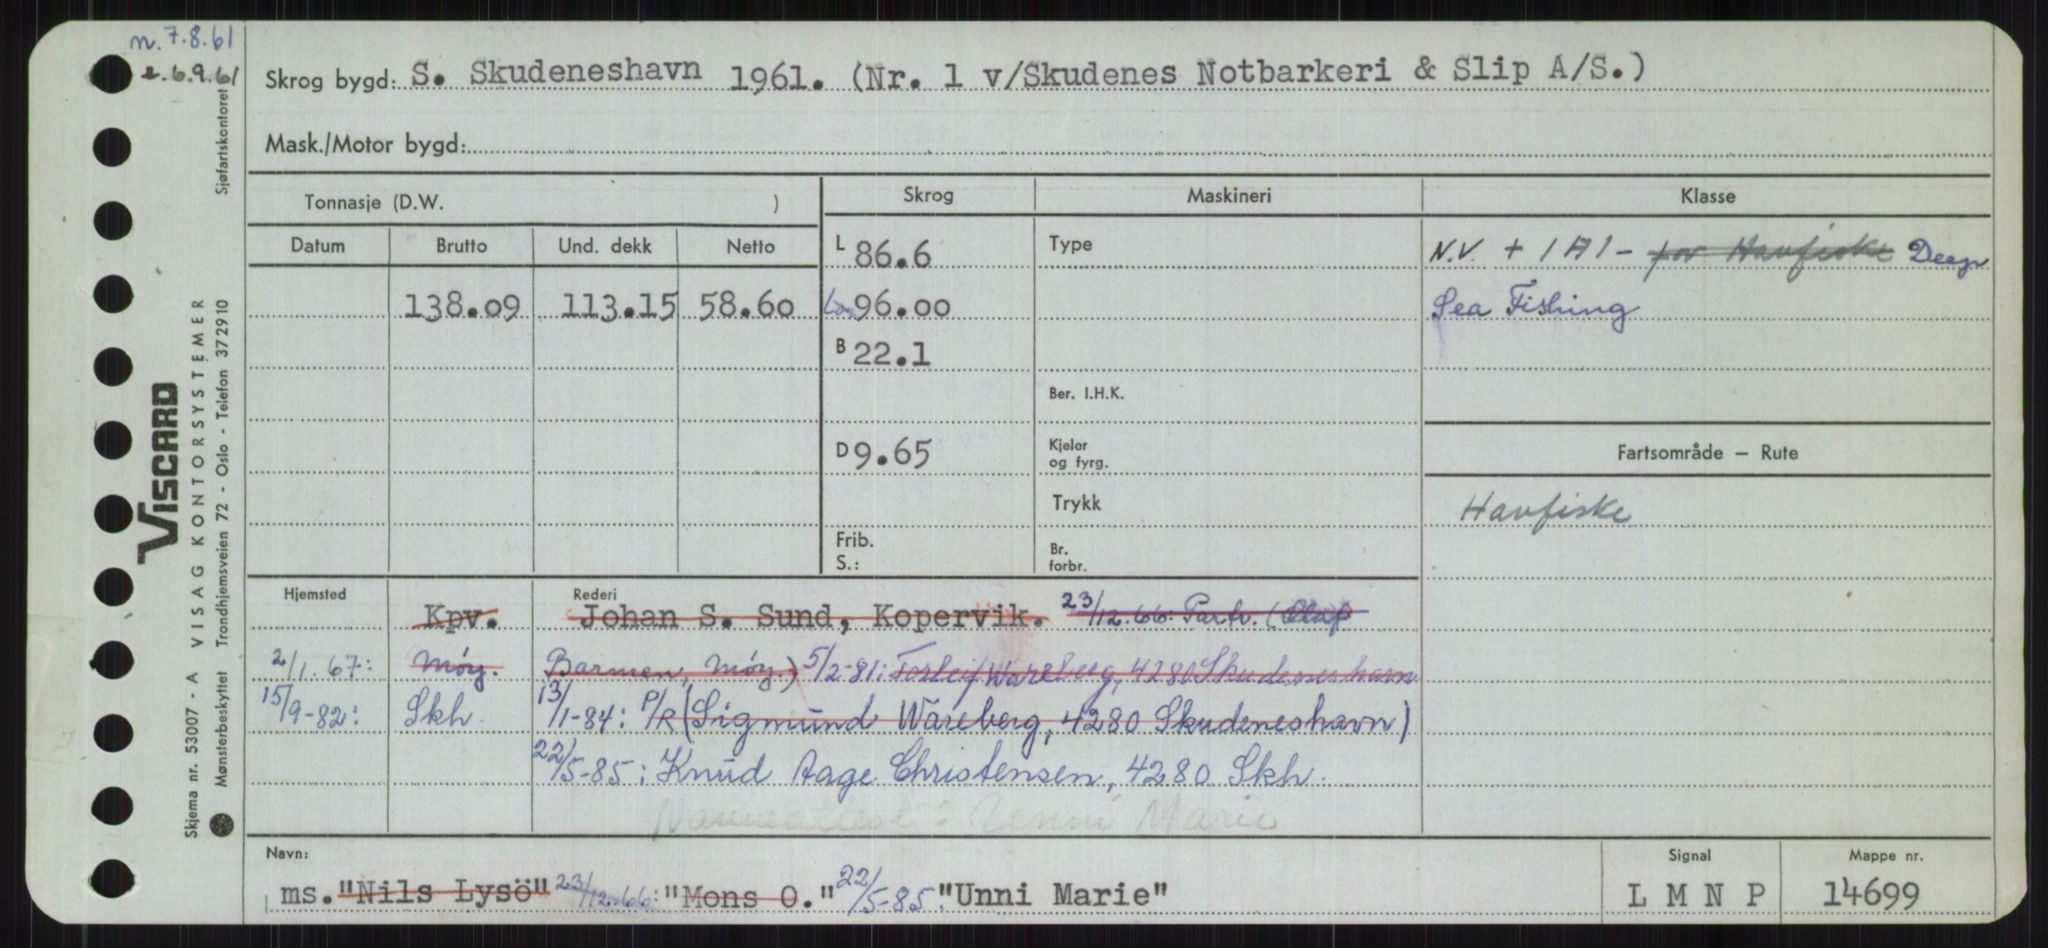 n. 7.8.61
2.6.9.61
Skrog bygd: S. Skudeneshavn 1961. (Nr. 1 v/Skudenes Notbarkeri & Slip A/S.)
Mask./Motor bygd:
Tonnasje (D.W. )
Datum Brutto Und. dekk Netto
138.09 113.15 58.60
Skrog
L 86.6
Loa 96.00
B 22.1
D 9.65
Frib.
S.:
Maskineri
Type
Ber. I.H.K.
Kjeler
og fyrg.
Trykk
Br.
forbr.
Klasse
N.V. + 1A1 - for Havfiske Deep
Sea Fishing
Fartsområde — Rute
Havfiske
Hjemsted Rederi
Kpv. Johan S. Sund, Kopervik. 23/12.66. Partr. (Olaf
2/1.67: Møy. Barmen, Møy.) 5/2-81: Torleif Wareberg, 4280 Skudeneshavn
15/9-82: Skh. 13/1-84: P/R (Sigmund Wareberg, 4280 Skudeneshavn)
22/5-85: Knud Aage Christensen, 4280 Skh.
Unni Marie
Navn:
ms. "Nils Lysö" 23/12.66: "Mons O." 22/5-85: "Unni Marie"
Signal
L M N P
Mappe nr.
14699
Sjøfartskontoret
VISCARD
VISAG KONTORSYSTEMER
Trondhjemsveien 72 - Oslo - Telefon 372910
Skjema nr. 53007 - A
Mønsterbeskyttet